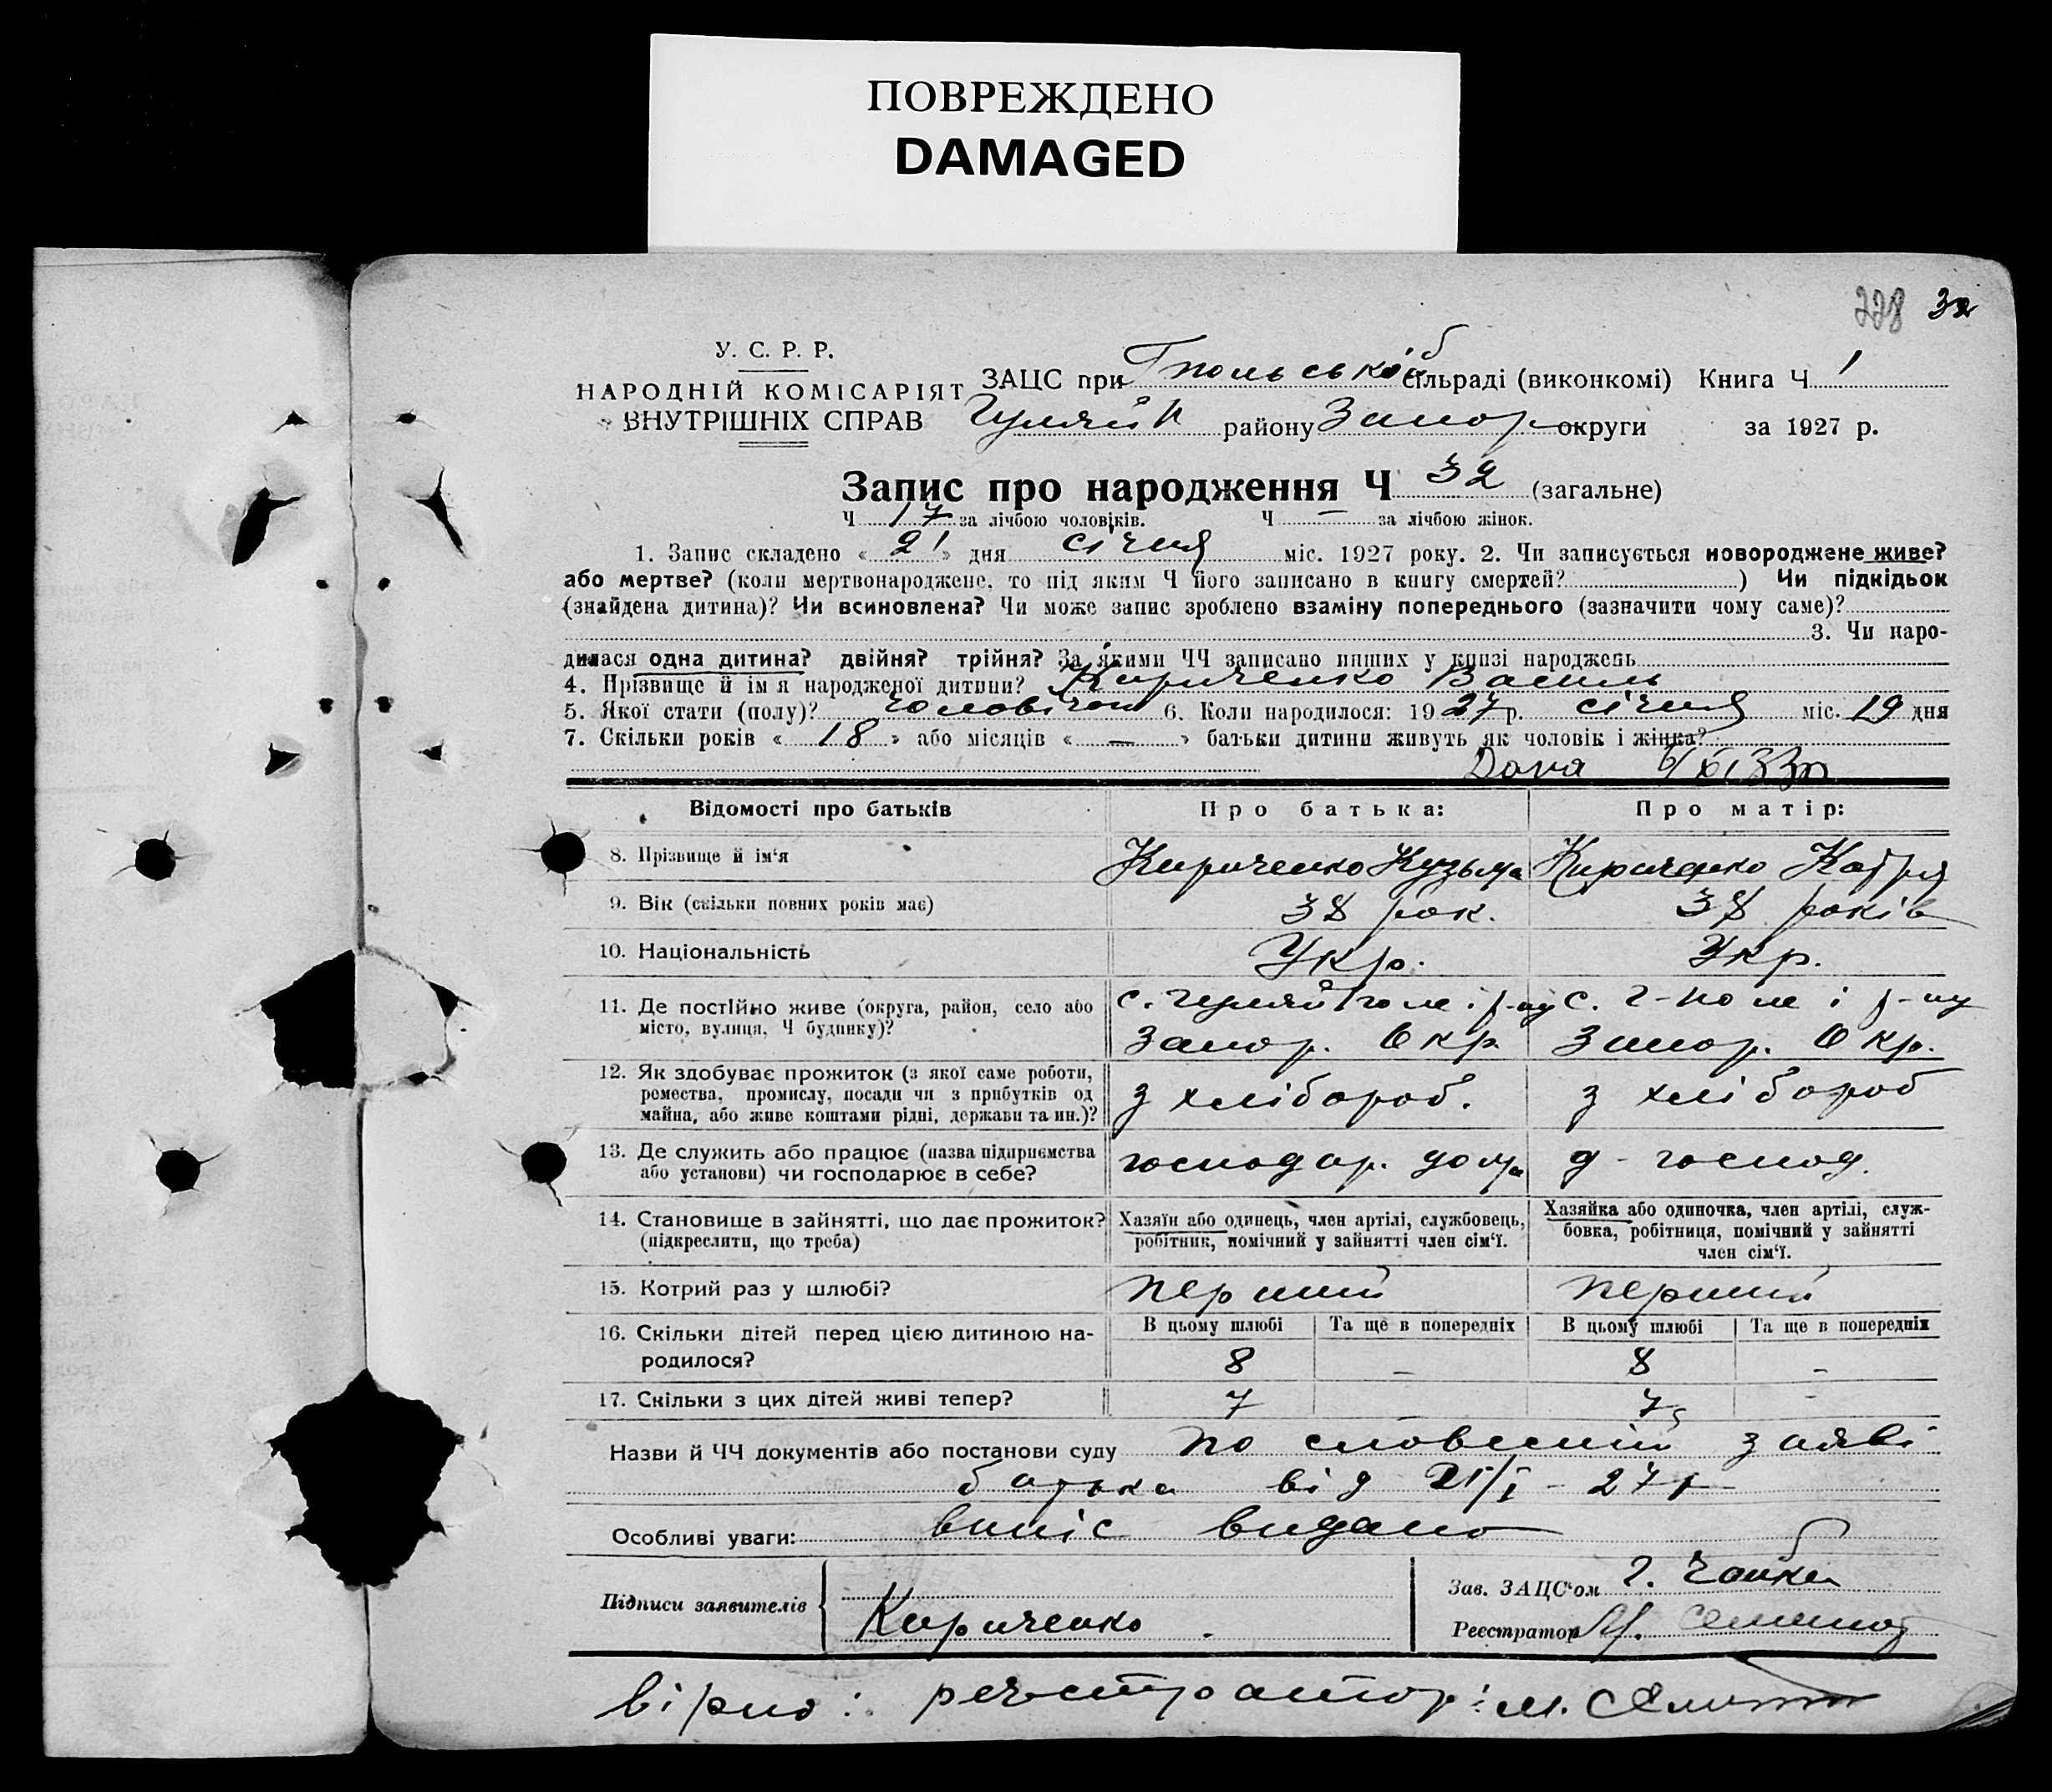 ПОВРЕЖДЕНО
DAMAGED
228 32
У. С. Р. Р.
НАРОДНІЙ КОМІСАРІЯТ
ВНУТРІШНІХ СПРАВ
ЗАЦС при сільраді (виконкомі) Книга Ч 1
Гуляй П району Запор округи за 1927 р.
Запис про народження Ч 32 (загальне)
Ч 17 за лічбою чоловіків. Ч — за лічбою жінок.
1. Запис складено « 21 » дня січня міс. 1927 року. 2. Чи записується новороджене живе?
або мертве? (коли мертвонароджене, то під яким Ч його записано в книгу смертей? ) Чи підкідьок
(знайдена дитина)? Чи всиновлена? Чи може запис зроблено взаміну попереднього (зазначити чому саме)?
3. Чи наро-
дилася одна дитина? двійня? трійня? За якими ЧЧ записано инших у книзі народжень
4. Прізвище й ім я народженої дитини? Кириченко Василь
5. Якої стати (полу)? чоловічої 6. Коли народилося: 19 27 р. січня міс. 19 дня
7. Скільки років « 18 » або місяців « — » батьки дитини живуть як чоловік і жінка?
Відомості про батьків Про батька: Про матір:
8. Прізвище й ім‘я Кириченко Кузьма Кириченко Катря
9. Вік (скільки повних років має) 38 рок. 38 років
10. Національність Укр. Укр.
11. Де постійно живе (округа, район, село або місто, вулиця, Ч будинку)? с. Гуляй Поле і р-ну с. Г-Поле і р-ну
Запор. Окр. Запор. Окр.
12. Як здобуває прожиток (з якої саме роботи,
ремества, промислу, посади чи з прибутків од
майна, або живе коштами рідні, держави та ин.)? з хлібороб. з хлібороб
13. Де служить або працює (назва підприємства
або установи) чи господарює в себе? господар. дома д-господ.
14. Становище в зайнятті, що дає прожиток?
(підкреслити, що треба)
Хазяїн або одинець, член артілі, службовець,
робітник, помічний у зайнятті член сім‘ї.
Хазяйка або одиночка, член артілі, служ-
бовка, робітниця, помічний у зайнятті
член сім‘ї.
15. Котрий раз у шлюбі? перший перший
16. Скільки дітей перед цією дитиною на-
родилося?
В цьому шлюбі Та ще в попередніх В цьому шлюбі Та ще в попередніх
8 – 8 –
17. Скільки з цих дітей живі тепер? 7 7 -
Назви й ЧЧ документів або постанови суду по словесній заяві
батька від 21/I - 27 р
Особливі уваги: випіс видано
Підписи заявителів Кириченко
Зав. ЗАЦС‘ом
Реєстратор
вірно: реєстратор: М.